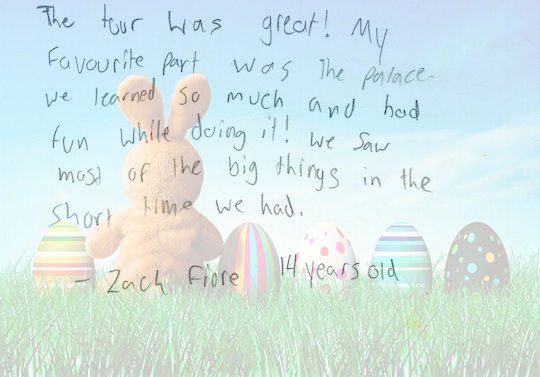 The tour was great! My
Favourite part was The palace.
We learned so much and had
fun while doing it! We saw
most of the big things in the
short time we had.
- Zach Fiore 14 years old